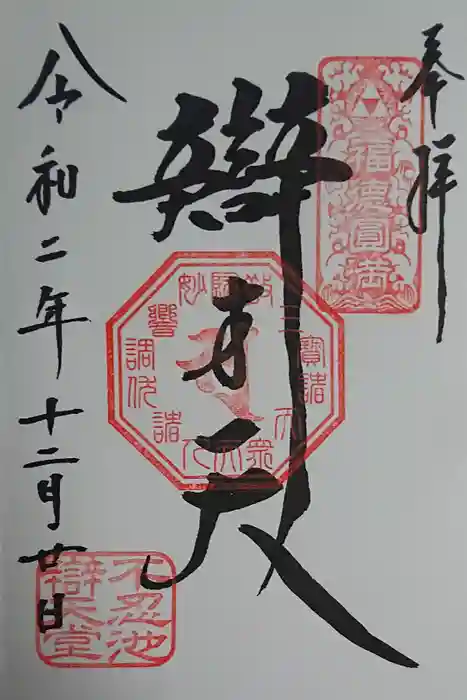 奉拝
福徳圓満
辯才天
令和二年十二月廿日
不忍池
辯天堂